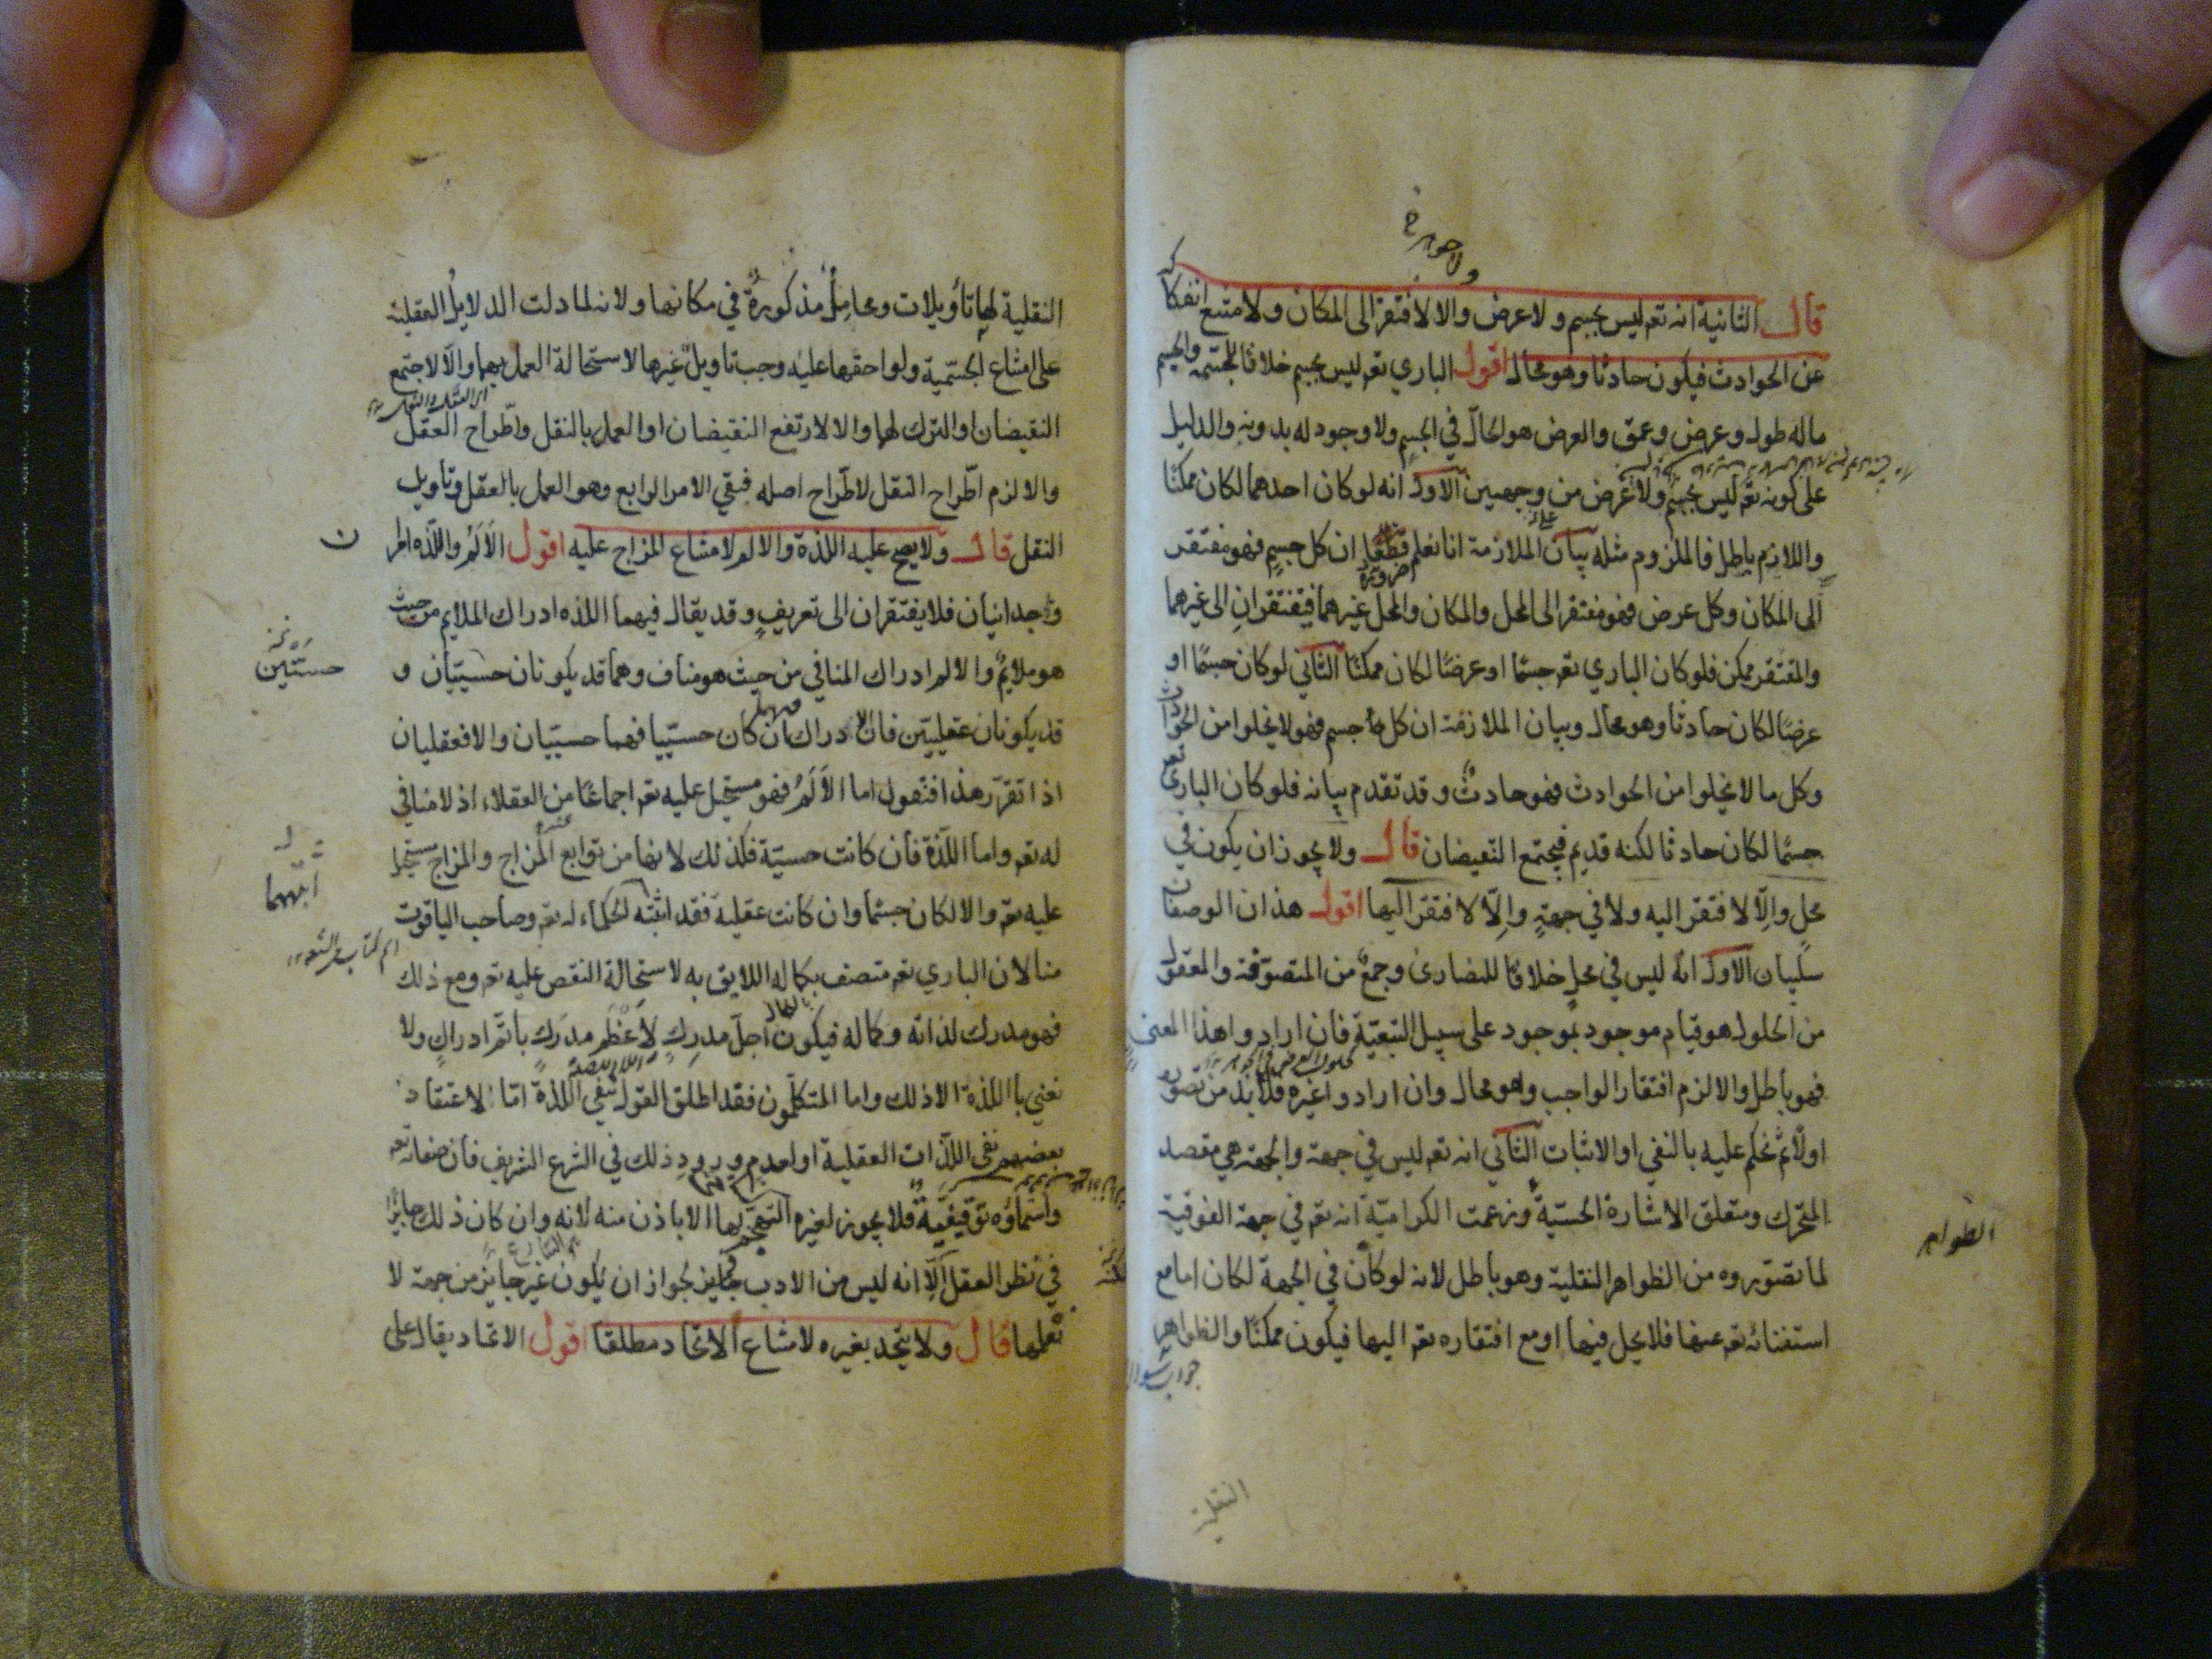 ولا جوهر خ
قال الثانية انه تعه ليس بجسم ولا عرض والا لافتقر الى المكان ولامتنع انفكاكه
عن الحوادث فيكون حادثا وهو محال اقول الباري تعه ليس بجسم خلافا للمجسمة والجسم
ماله طول وعرض وعمق والعرض هو الحال في الجسم ولا وجود له بدونه والدليل
على كونه تعه ليس بجسم ولا عرض من وجهين الاول انه لو كان احدهما لكان ممكنا
واللازم باطل فالملزوم مثله بيان الملازمة انا نعلم قطعا ان كل جسم فهو مفتقر
ضرورة
الى المكان وكل عرض فهو مفتقر الى المحل والمكان والمحل غيرهما فيفتقران الى غيرهما
والمفتقر ممكن فلو كان الباري تعه جسما او عرضا لكان ممكنا الثاني لو كان جسما او
عرضا لكان حادثا وهو محال وبيان الملازمة ان كل جسم فهو لا يخلوا من الحوادث
وكل ما لا يخلوا من الحوادث فهو حادث وقد تقدم بيانه فلو كان الباري تعه
جسما لكان حادثا لكنه قديم فيجتمع النقيضان قال ولا يجوز ان يكون في
محل والا لافتقر اليه ولا في جهة والا لافتقر اليها اقول هذان الوصفان
سلبيان الاول انه ليس في محل خلافا للنصارى وجمع من المتصوفة والمعقول
من الحلول هو قيام موجود بموجود على سبيل التبعية فان ارادوا هذا المعنى
فهو باطل والا لزم افتقار الواجب وهو محال وان ارادوا غيره فلا بد من تصوره
اولا ثم نحكم عليه بالنفي او الاثبات الثاني انه تعه ليس في جهة والجهة هي مقصد
المتحرك ومتعلق الاشارة الحسية وزعمت الكرامية انه تعه في جهة الفوقية
لما تصوروه من الظواهر النقلية وهو باطل لانه لو كان في الجهة لكان اما مع
الظواهر
استغنائه تعه عنها فلا يحل فيها او مع افتقاره تعه اليها فيكون ممكنا والظواهر
جواب سؤال
النقلية
النقلية لها تأويلات ومحامل مذكورة في مكانها ولانه لما دلت الدلايل العقلية
على امتناع الجسمية ولواحقها عليه وجب تاويل غيرها لاستحالة العمل بهما والا لاجتمع
النقيضان او الترك لهما والا لارتفع النقيضان او العمل بالنقل واطراح العقل
والا لزم اطراح النقل لاطراح اصله فبقي الامر الرابع وهو العمل بالعقل وتاويل
النقل قال ولا يصح عليه اللذة والالم لامتناع المزاج عليه اقول الالم واللذه امران
وجدانيان فلا يفتقران الى تعريف وقد يقال فيهما اللذه ادراك الملايم من حيث
هو ملايم والالم ادراك المنافي من حيث هو مناف وهما قد يكونان حسيتان و
حسيتين
قد يكونان عقليتين فان الادراك ان كان حسيا فهما حسيتان والا فعقليان
اذا تقرر هذا فنقول اما الالم فهو مستحيل عليه تعه اجماعا من العقلاء اذ لا منافي
له تعه واما اللذة فان كانت حسية فكذلك لانها من توابع المزاج والمزاج يستحيل
عليه تعه والا لكان جسما وان كانت عقلية فقد اثبته الحكماء له تعه وصاحب الياقوت
اثبتهما
منا لان الباري تعه متصف بكماله اللايق به لاستحالة النقص عليه تعه ومع ذلك
فهو مدرك لذاته وكماله فيكون اجل مدرك لاعظم مدرك باتم ادراك ولا
نعني باللذة الا ذلك واما المتكلمون فقد اطلق القول بنفي اللذة اما لاعتقاد
بعضهم نفي اللذات العقلية او لعدم ورود ذلك في الشرع الشريف فان صفاته تعه
واسماؤه توقيفية فلا يجوز لغيره التهجم بها الا باذن منه لانه وان كان ذلك جايزا
في نظر العقل الا انه ليس من الادب لجواز ان يكون غير جايز من جهة لا
نعلمها قال ولا يتحد بغيره لامتناع الاتحاد مطلقا اقول الاتحاد يقال على